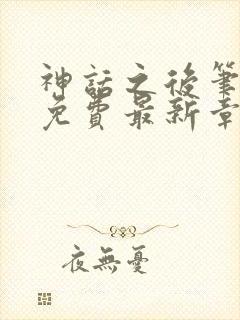 神話之後筆
免費最新章
夜無憂